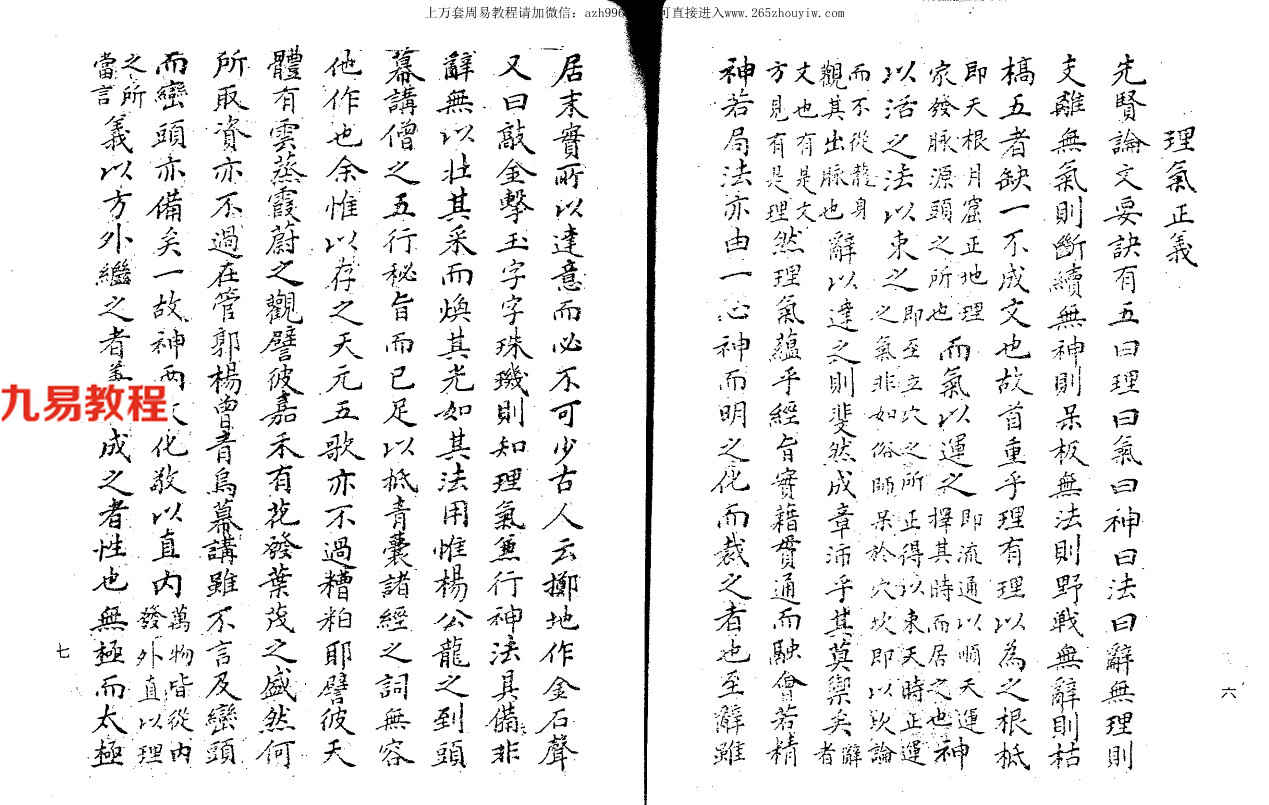 上万套周易教程请加微信：azh996 可直接进入www.265zhouyiw.com
理氣正義
先賢論文要訣有五曰理曰氣曰神曰法曰辭無理則
支離無氣則斷續無神則呆板無法則野戰無辭則枯
槁五者缺一不成文也故首重乎理有理以為之根柢
即天根月窟正地理
家發脉源頭之所也
而氣以運之
即流通以順天運
擇其時而居之也
神
以活之法以束之
即至立穴之所正得以束天時正運
之氣非如俗師呆於穴坎即以欤論
而不從龍身
觀其出脉也
辭以達之則斐然成章沛乎其莫禦矣
辭
者
文也有是文
方見有是理
然理氣蘊乎經旨實藉貫通而融會若精
神若局法亦由一心神而明之化而裁之者也至辭雖
六
居末實所以達意而必不可少古人云擲地作金石聲
又曰敲金擊玉字字珠璣則知理氣兼行神法具備非
辭無以壯其采而煥其光如其法用惟楊公龍之到頭
幕講僧之五行秘旨而已足以柢青囊諸經之詞無容
他作也余惟以存之天元五歌亦不過糟粕耶譬彼天
體有雲蒸霞蔚之觀譬彼嘉禾有花發葉茂之盛然何
所取資亦不過在管郭楊曾青烏幕講雖不言及巒頭
而巒頭亦備矣一故神兩 化敬以直內
萬物皆從內
發外直以理
之所
當言
義以方外繼之者 成之者性也無極而太極
七
九易教程